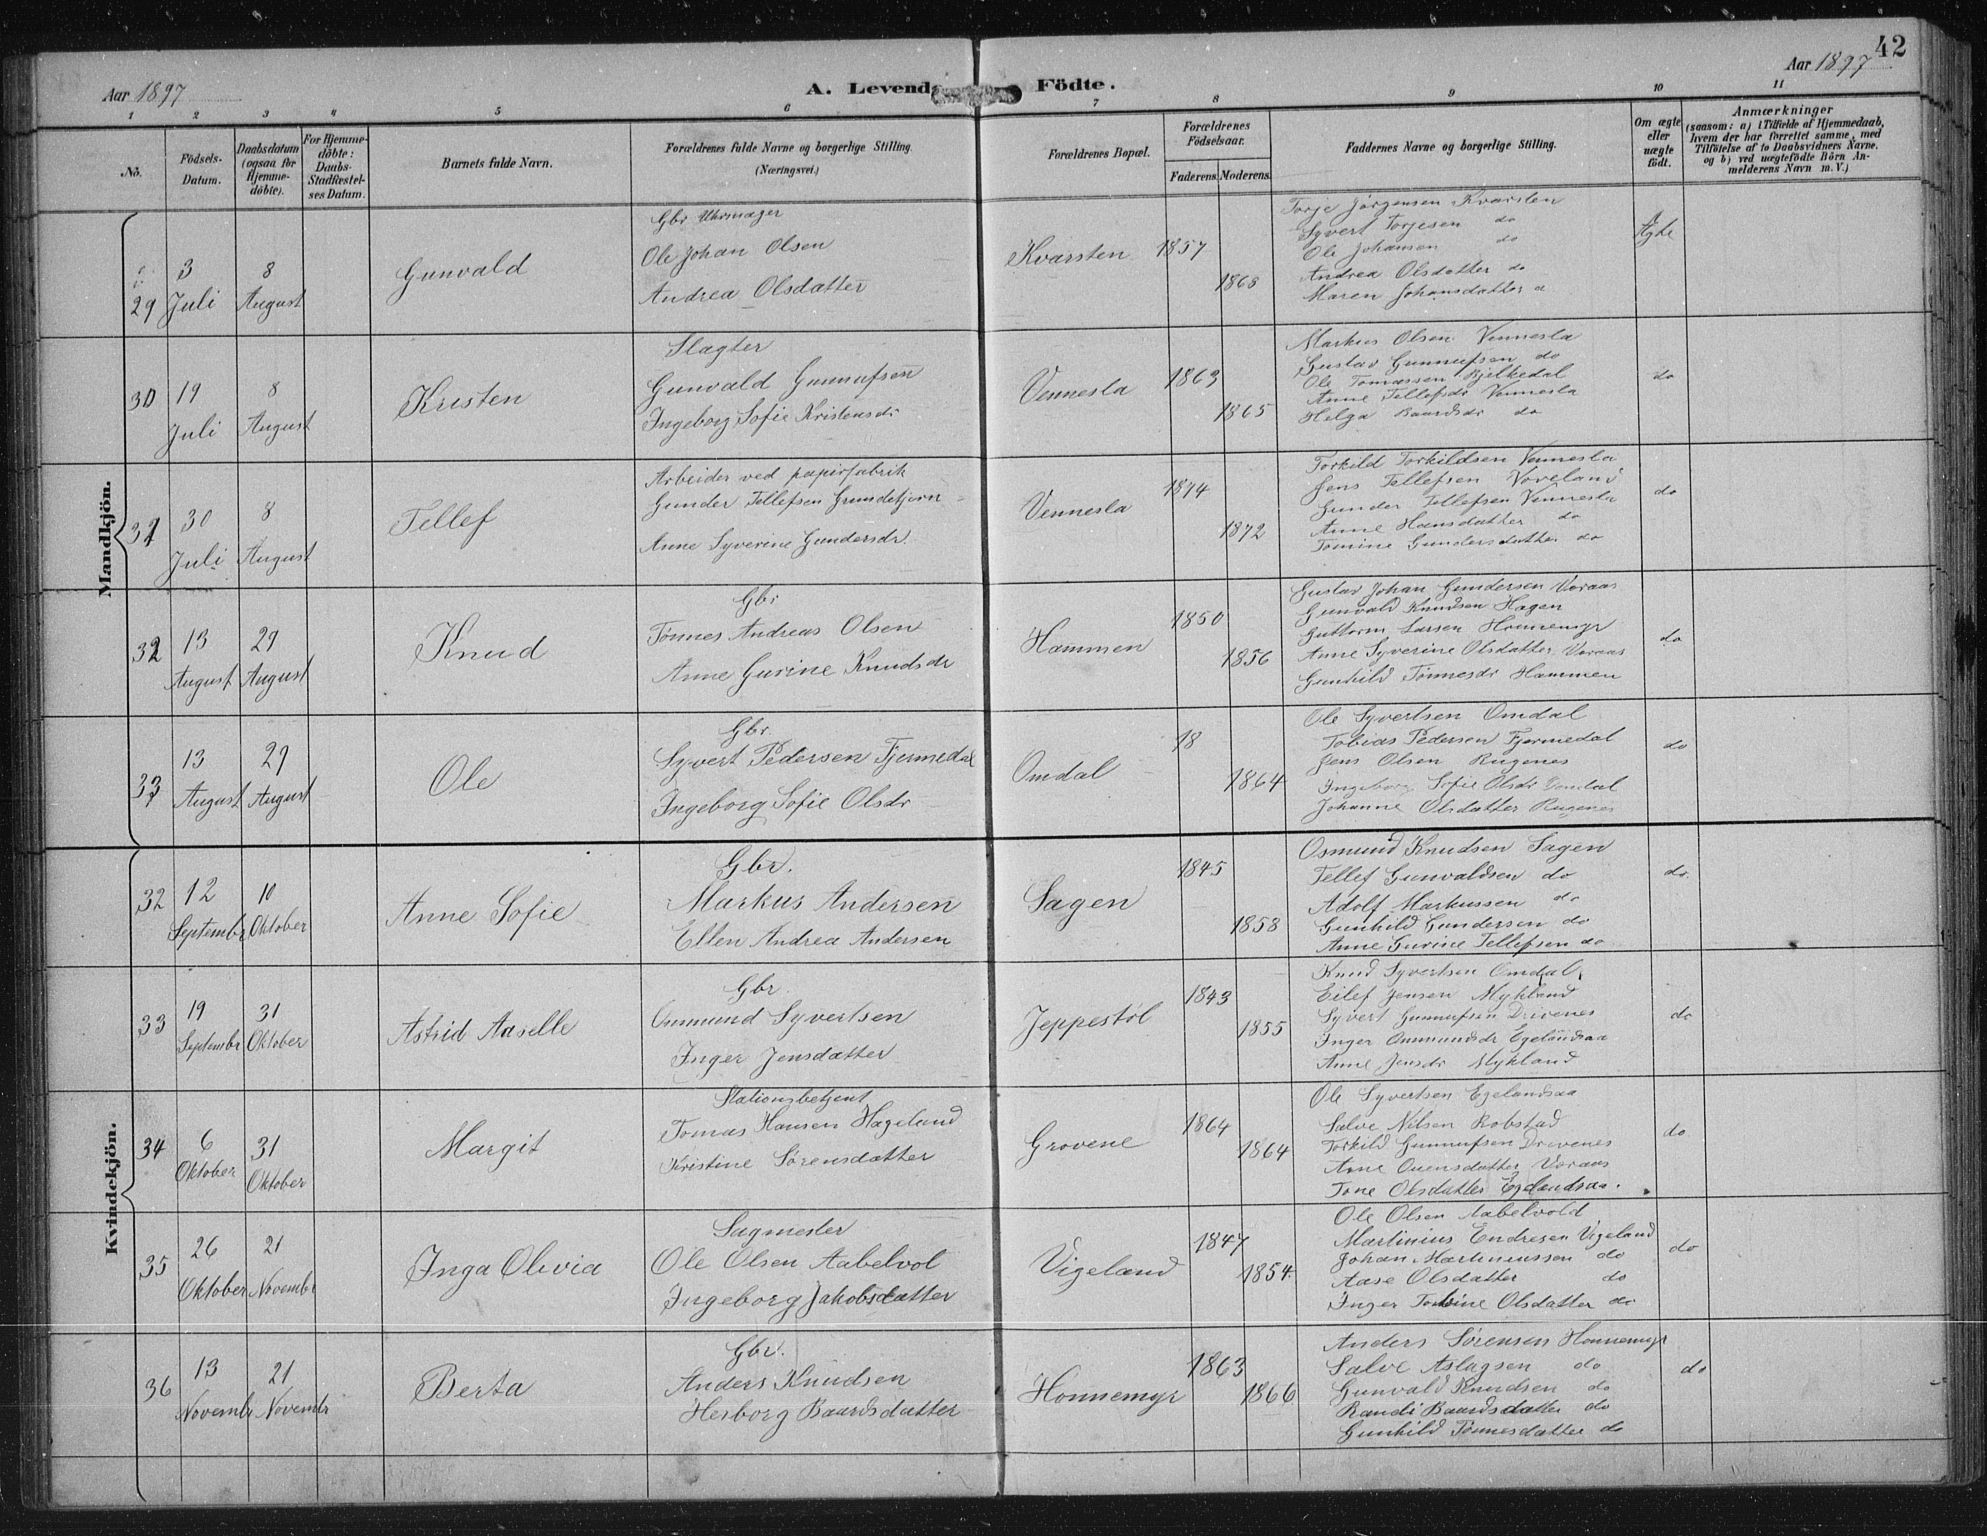 42
Aar 1897
A. Levende Födte.
Aar 1897
1 2 3 4 5 6 7 8 9 10 11
No.
Födsels-Datum.
Daabsdatum (ogsaa for Hjemmedöbte).
For Hjemmedöbte: Daabs-Stadfæstelses Datum.
Barnets fulde Navn.
Forældrenes fulde Navne og borgerlige Stilling.
(Næringsvei.)
Forældrenes Bopæl.
Forældrenes Födselsaar.
Faderens. Moderens.
Faddernes Navne og borgerlige Stilling.
Om ægte eller uægte födt.
Anmærkninger
(saasom: a) i Tilfælde af Hjemmedaab, hvem der har forrettet samme, med Tilföielse af to Daabsvidners Navne, og b) ved uægtefödte Börn Anmelderens Navn m. V.)
Mandkjön.
29
3 Juli
8 August
Gunvald
Gbr Uhrmager
Ole Johan Olsen
Andrea Olsdatter
Kvarsten
1857
1868
Torje Jørgensen Kvarsten
Syvert Torjesen do
Ole Johansen do
Andrea Olsdatter do
Maren Johansdatter
Ægte
30
19 Juli
8 August
Kristen
Slagter
Gunvald Gunnufsen
Ingeborg Sofie Kristensdr
Vennesla
1863
1865
Markus Olsen Vennesla
Gustav Gunnufsen do
Ole Tomassen Bjelkedal
Anne Tellefsdr Vennesla
Helga Baardsdr do
do
31
30 Juli
8 August
Tellef
Arbeider ved papirfabrik
Gunder Tellefsen Grundetjørn
Anne Syverine Gundersdr
Vennesla
1874
1872
Torkild Torkildsen Vennesla
Jens Tellefsen Voreland
Gunder Tellefsen Vennesla
Anne Hansdatter do
Tomine Gundersdatter do
do
32
13 August
29 August
Knud
Gbr
Tønnes Andreas Olsen
Anne Gurine Knudsdr
Hammen
1850
1856
Gustav Johan Gundersen Voraas
Gunvald Knudsen Hagen
Guttorm Larsen Honnemyr
Anne Syverine Olsdatter Voraas
Gunhild Tønnesdr Hammen
do
33
13 August
29 August
Ole
Gbr
Syvert Pedersen Fjermedal
Ingeborg Sofie Olsdr
Omdal
18
1864
Ole Syvertsen Omdal
Tobias Pedersen Fjermedal
Jens Olsen Rugenes
Ingeborg Sofie Olsdr Omdal
Johanne Olsdatter Rugenes
do
Kvindekjön.
32
12 September
10 Oktober
Anne Sofie
Gbr.
Markus Andersen
Ellen Andrea Andersen
Sagen
1845
1858
Osmund Knudsen Sagen
Tellef Gunvaldsen do
Adolf Markussen do
Gunhild Gundersen do
Anne Gurine Tellefsen do
do.
33
19 September
31 Oktober
Astrid Aaselle
Gbr.
Ommund Syvertsen
Inger Jensdatter
Jeppestøl
1843
1855
Knud Syvertsen Omdal
Eilef Jensen Mykland
Syvert Gunnufsen Drivenes
Inger Ommundsdr Egelandsaa
Anne Jensdr Mykland
do
34
6 Oktober
31 Oktober
Margit
Stationsbetjent
Tomas Hansen Hageland
Kristine Sørensdatter
Grovene
1864
1864
Ole Syvertsen Egelandsaa
Salve Nilsen Robstad
Torkild Gunnufsen Drivenes
Anne Ouensdatter Voraas
Tone Olsdatter Egelandsaa.
do
35
26 Oktober
21 November
Inga Olivia
Sagmester
Ole Olsen Aabelvol
Ingeborg Jakobsdatter
Vigeland
1847
1854.
Ole Olsen Aabelvold
Martinius Endresen Vigeland
Johan Martiniussen do
Aase Olsdatter do
Inger Olsdatter do
do
36
13 Novembr
21 Novembr
Berta
Gbr.
Anders Knudsen
Herborg Baardsdatter
Honnemyr
1863
1866
Anders Sørensen Honnemyr
Salve Aslagsen do
Gunvald Knudsen do
Randi Baardsdatter do
Gunhild Tønnesdatter do
do